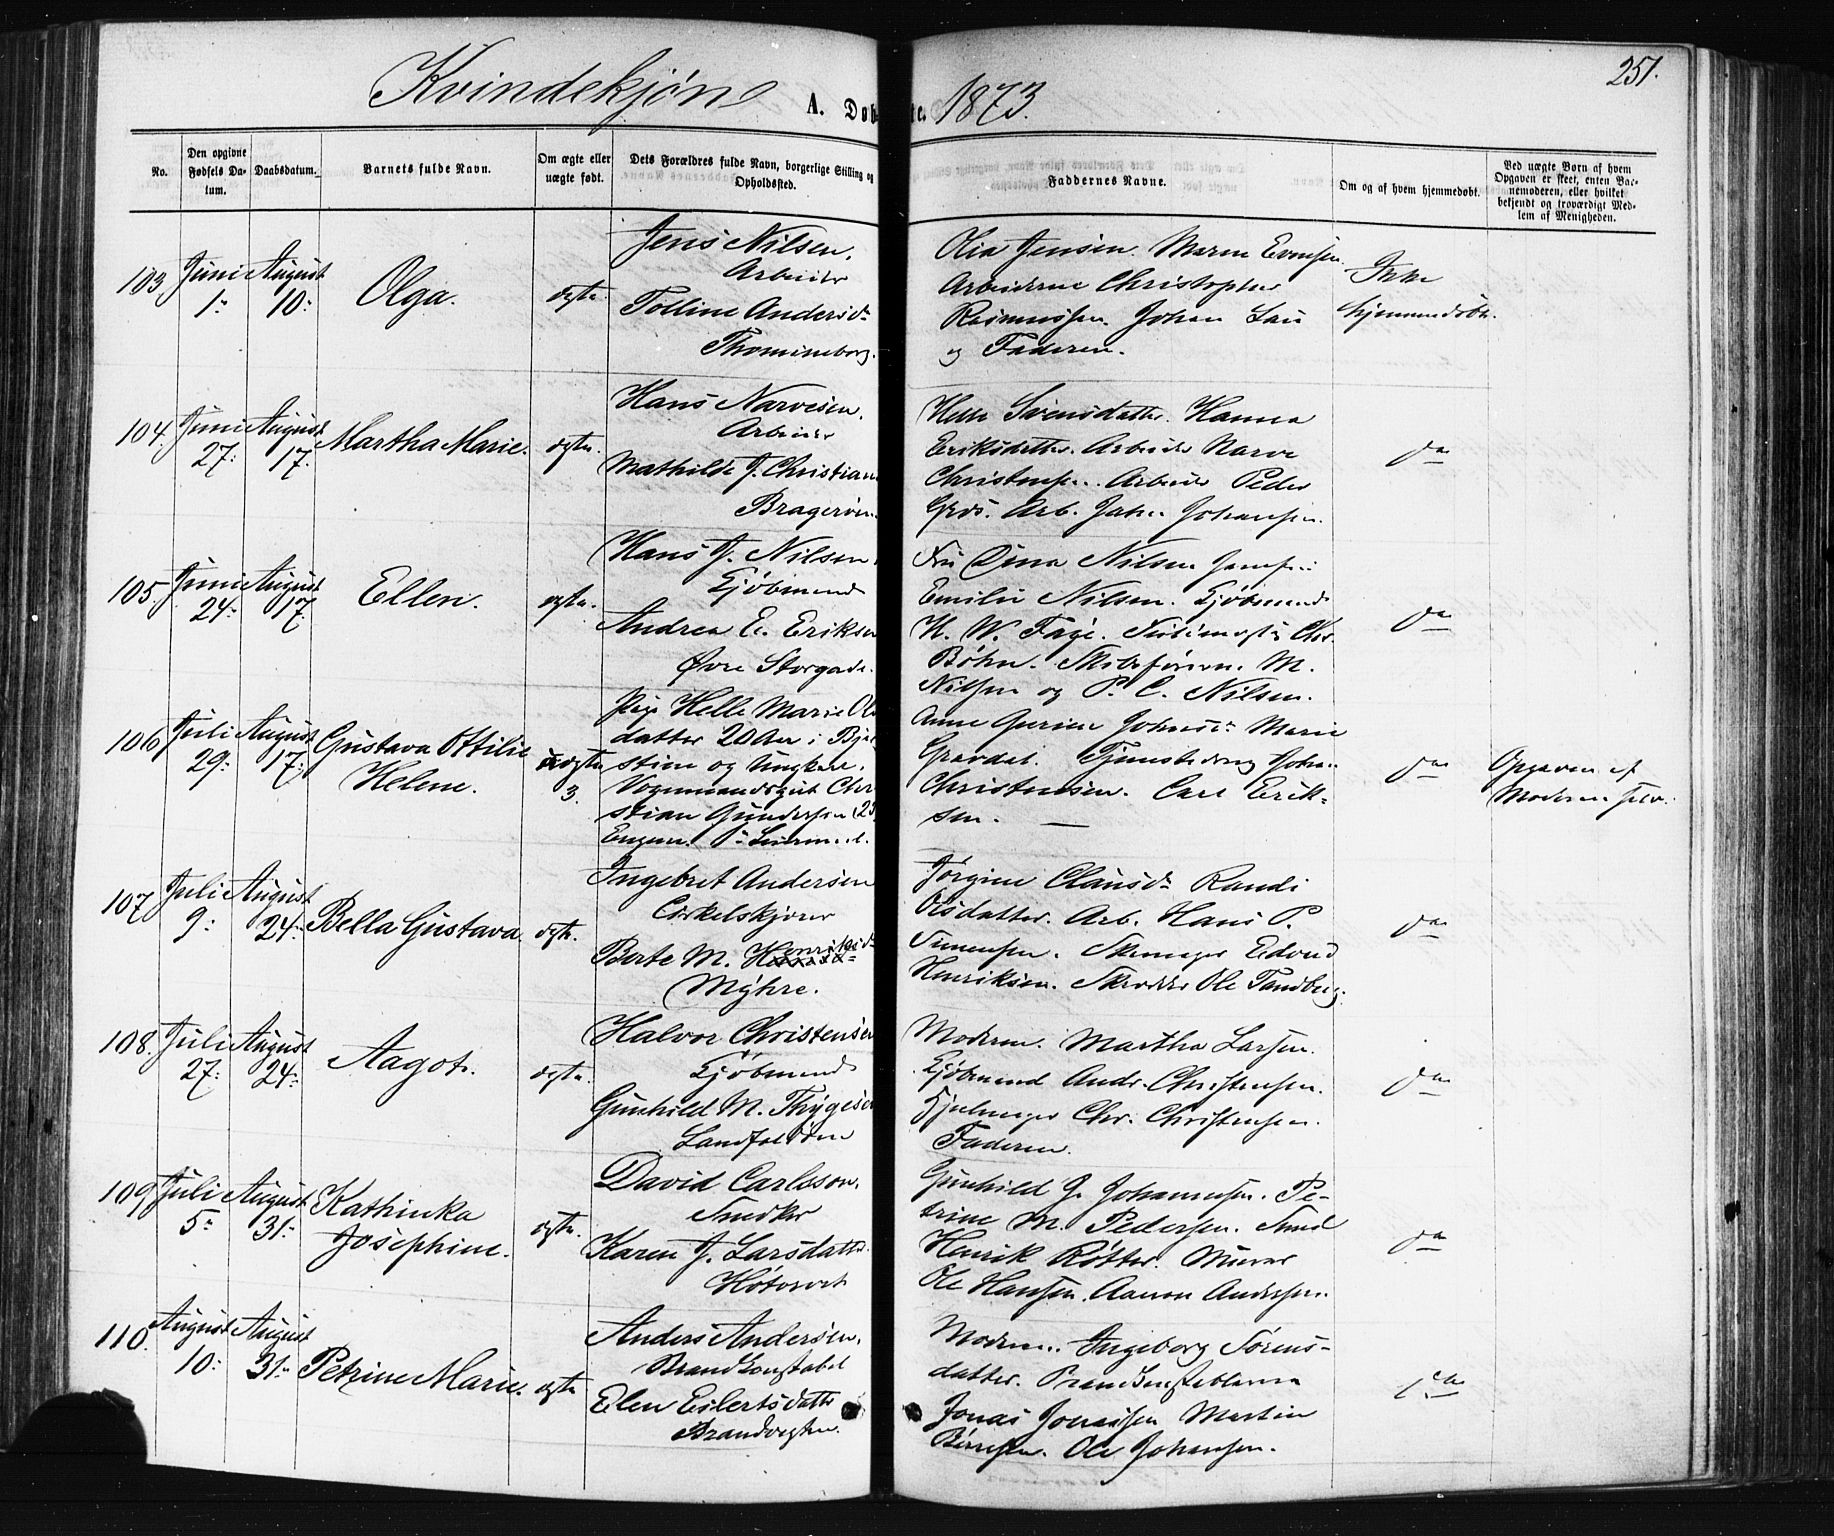 251.
Kvindekjøn A. Døbte. 1873.
No.
Den opgivne Fødsels Da-
tum.
Daabsdatum.
Barnets fulde Navn.
Om ægte eller
uægte født.
Dets Forældres fulde Navn, borgerlige Stilling og
Opholdssted.
Faddernes Navne.
Om og af hvem hjemmedøbt.
Ved uægte Børn af hvem
Opgaven er skeet, enten Bar-
nemoderen, eller hvilket
bekjendt og troværdigt Med-
lem af Menigheden.
103 Juni 1: August 10: Olga. ægte.
Jens Nilsen.
Arbeider
Tolline Andersd.
Thomineborg.
Olia Jensen. Maren Evensen.
Arbeiderne Christopher
Rasmussen. Johan Lau
og Faderen.
Ikke
hjemmedøbt.
104. Juni 27: August 17. Martha Marie. ægte.
Hans Narvesen.
Arbeider
Mathilde J. Christian
Bragerøen.
Helle Svensdatter. Hanna
Eriksdatter. Arbeider Narve
Christensen. Arbeider Peder
Arb. Johan Johansen.
do
105. Juni 24: August 17. Ellen. ægte.
Hans J. Nilsen.
Kjøbmand
Andrea E. Eriksen
Øvre Storgade.
Fru Dina Nilsen Jomfru
Emilie Nilsen. Kjøbmand
H. W. Chr.
Bøhn. Skibsfører M.
Nilsen og P. C. Nilsen.
do
106 Juli 29: August 17: Gustava Ottilie
Helene. uægte 3.
Pige Helle Marie Ols
datter 20 Aar i
og Ungkarl.
Vognmandsgut Chr
stian Gundersen (25
Anne Gurine Johnsd. Marie
Gravdal. Tjenestedreng Johan
Christensen. Carl Erik-
sen. —
do
Opgaven af
Moderen selv.
107 Juli 9: August 24: Bella Gustava. ægte.
Ingebret Andersen
Cirkelskjører
Berte M. Henriksd.
Myhre.
Jørgine Clausd. Randi
Olsdatter. Arb. Hans P.
Simensen. Skomager Edvard
Henriksen. Skrædder Ole Tandberg.
do
108. Juli 27: August 24: Aagot. ægte.
Halvor Christensen
Kjøbmand
Gunhild M. Thygesen
Landfaldøen
Moderen. Martha Larsen.
Kjøbmand Andr. Christensen.
Hjulmager Chr. Christensen.
Faderen.
do
109 Juli 5: August 31: Kathinka
Josephine. ægte.
David Carlsson.
Snedker
Karen J. Larsdatter.
Høtorvet
Gunhild G. Johannesen. Pe-
trine M. Pedersen. Smed
Henrik Røtter. Murer
Ole Hansen. Aamon Andersen.
do
110. August 10: August 31: Petrine Marie. ægte
Anders Andersen.
Brandkonstabel
Elen Eilertsdatter
Brandvagten.
Moderen. Ingeborg Sørens-
datter. Brandkonstablerne
Jonas Jonassen Martin
Ole Johansen.
do